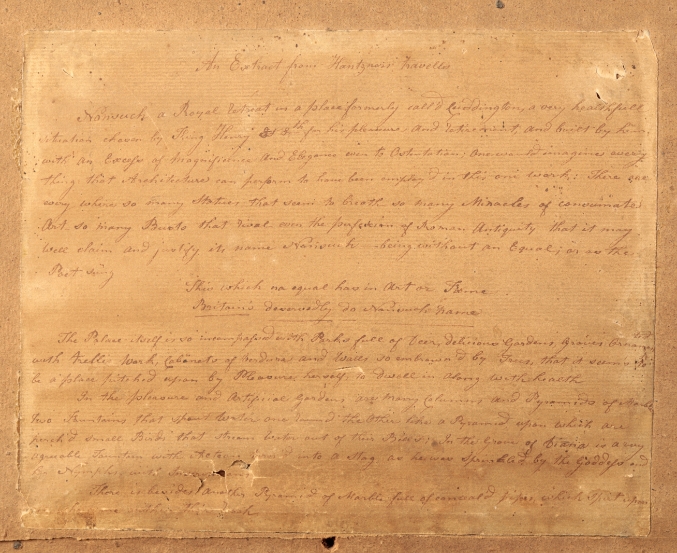 An Extract from Hentzners Travells
Nansuch a Royal Retreat in a place formerly call'd Cuddington, a very healthfull
situation chosen by King Henry 8th for his pleasure and Retirement, and built by him
with an Excess of Magnificence and Elegance even to Ostentation; One would imagine every
thing that Architecture can perform to have been employ'd in this one work: There are
every where so many Statues that seem to breath so many Miracles of consumate
Art, so many Busts that rival even the perfection of Roman Antiquity that it may
well claim and justify its name Nansuch being without an Equal; or as the
Poet sung
This which no equal has in Art or Fame
Britains deservedly do Nansuch name
The Palace itself is so incompassed with Parks full of Deer, delicious Gardens, Groves
with trellis Work, Cabinets of Verdure and Walls so embrowned by Trees, that it seems to
be a place pitched upon by Pleasure herself, to dwell in along with health
In the pleasure and Artificial Gardens are many Columns and Pyramids of Marble
two Fountains that spout Water one round the Other like a Pyramid upon which are
perch'd small Birds that stream water out of their Bills: In the Grove of Diana is a very
agreeable Fountain with Acteon turn'd into a Stag, as he was sprinkled by the Goddess and
her Nymphs with
There is besides another Pyramid of Marble full of conceal'd pipes, which Spirt upon